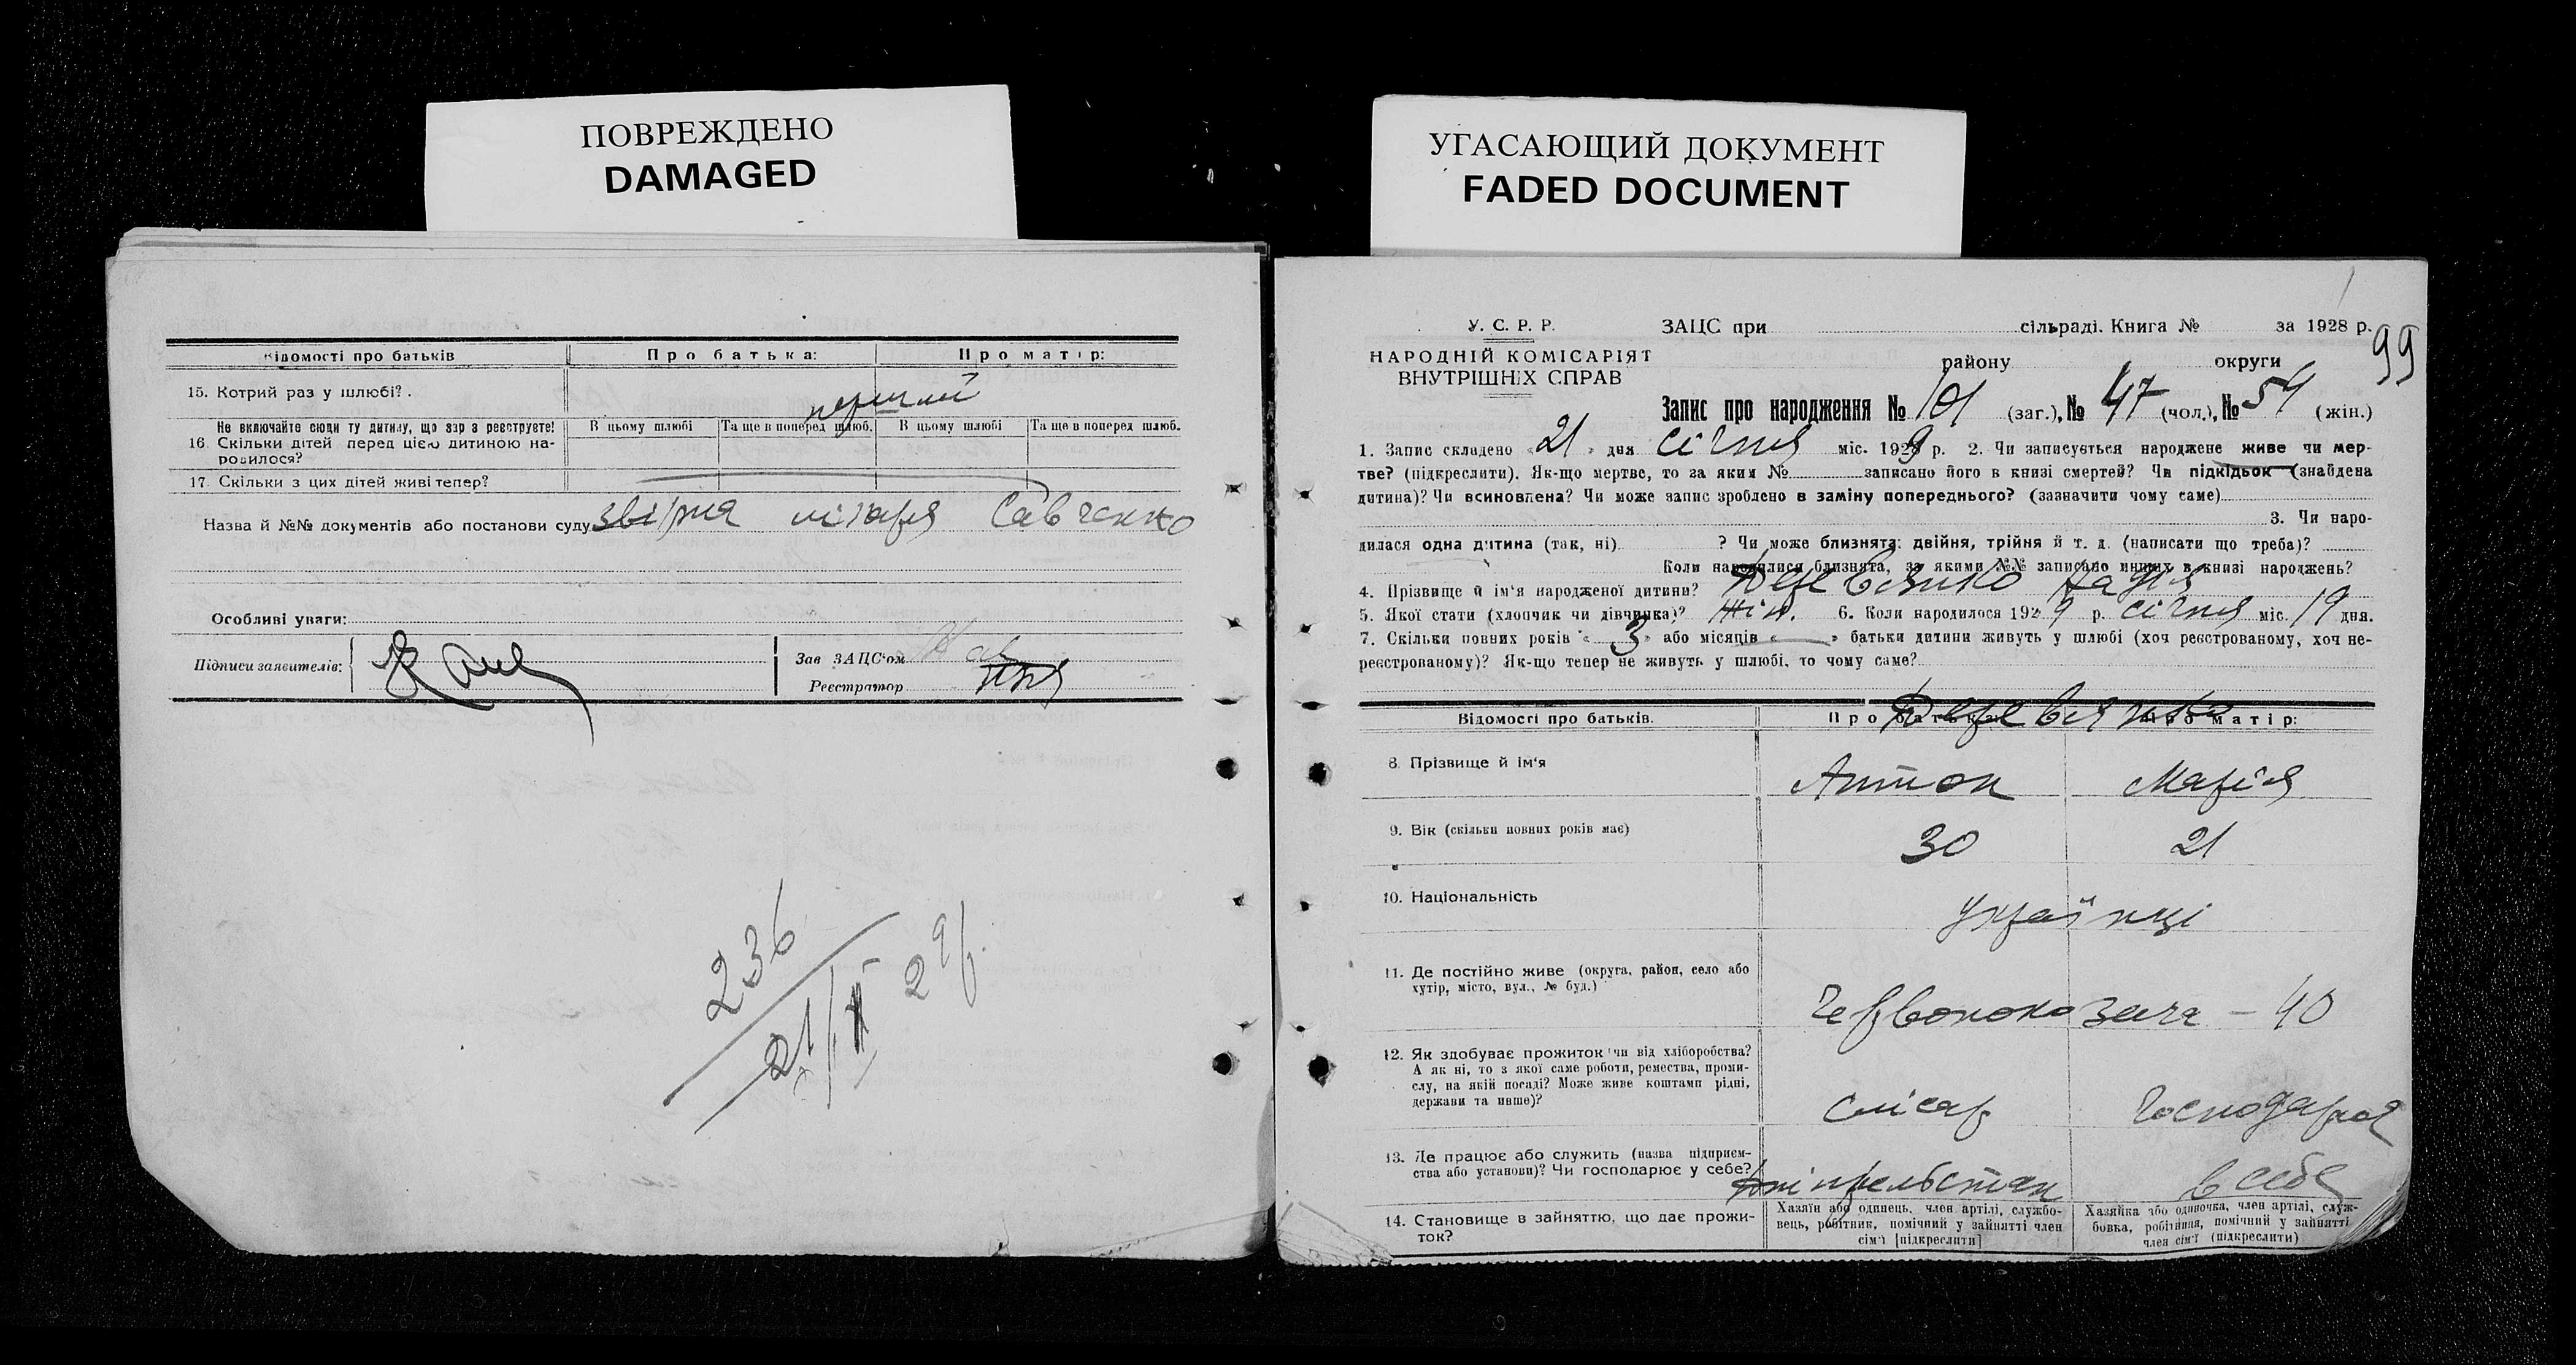 ПОВРЕЖДЕНО
DAMAGED
УГАСАЮЩИЙ ДОКУМЕНТ
FADED DOCUMENT
Відомості про батьків
Про батька:
Про матір:
15. Котрий раз у шлюбі?
перший
Не включайте сюди ту дитину, що зараз реєструєте!
В цьому шлюбі
Та ще в поперед шлюб.
В цьому шлюбі
Та ще в поперед шлюб.
16. Скільки дітей перед цією дитиною на-
родилося?
17. Скільки з цих дітей живі тепер?
Назва й №№ документів або постанови суду
Савченко
Особливі уваги:
Підписи заявителів:
Зав ЗАЦС'ом
Реєстратор
236
21/II 29р.
У. С. Р. Р.
НАРОДНІЙ КОМІСАРІЯТ
ВНУТРІШНІХ СПРАВ
ЗАЦС при сільраді. Книга № за 1928 р.
99
району округи
Запис про народження № 101 (заг.), № 47 (чол.), № 54 (жін.)
1. Запис складено „21" дня січня міс. 1929 р. 2. Чи записується народжене живе чи мер-
тве? (підкреслити). Як-що мертве, то за яким № записано його в книзі смертей? Чи підкідьок (знайдена
дитина)? Чи всиновлена? Чи може запис зроблено в заміну попереднього? (зазначити чому саме)
3. Чи наро-
дилася одна дитина (так, ні) ? Чи може близнята: двійня, трійня й т. д. (написати що треба)?
Коли народилися близнята, за якими №№ записано инших в книзі народжень?
4. Прізвище й ім'я народженої дитини? Деревянко Надія
5. Якої стати (хлопчик чи дівчинка)? жін. 6. Коли народилося 1929 р. січня міс. 19 дня.
7. Скільки повних років „3" або місяців „—" батьки дитини живуть у шлюбі (хоч реєстрованому, хоч не-
реєстрованому)? Як-що тепер не живуть у шлюбі, то чому саме?
Відомості про батьків.
Про батька:
Про матір:
Деревянко
8. Прізвище й ім'я
Антон
Марія
9. Вік (скільки повних років має)
30
21
10. Національність
українці
11. Де постійно живе (округа, район, село або
хутір, місто, вул., № буд.)
Червонокозача – 40
12. Як здобуває прожиток чи від хліборобства?
А як ні, то з якої саме роботи, ремества, проми-
слу, на якій посаді? Може живе коштами рідні,
держави та инше)?
Слісар
Господарює
13. Де працює або служить (назва підприєм-
ства або установи)? Чи господарює у себе?
в себе
14. Становище в зайняттю, що дає прожи-
ток?
Хазяїн або одинець, член артілі, службо-
вець, робітник, помічний у зайнятті член
сім'ї [підкреслити]
Хазяйка або одиночка, член артілі, служ-
бовка, робітниця, помічний у зайнятті
член сім'ї (підкреслити)